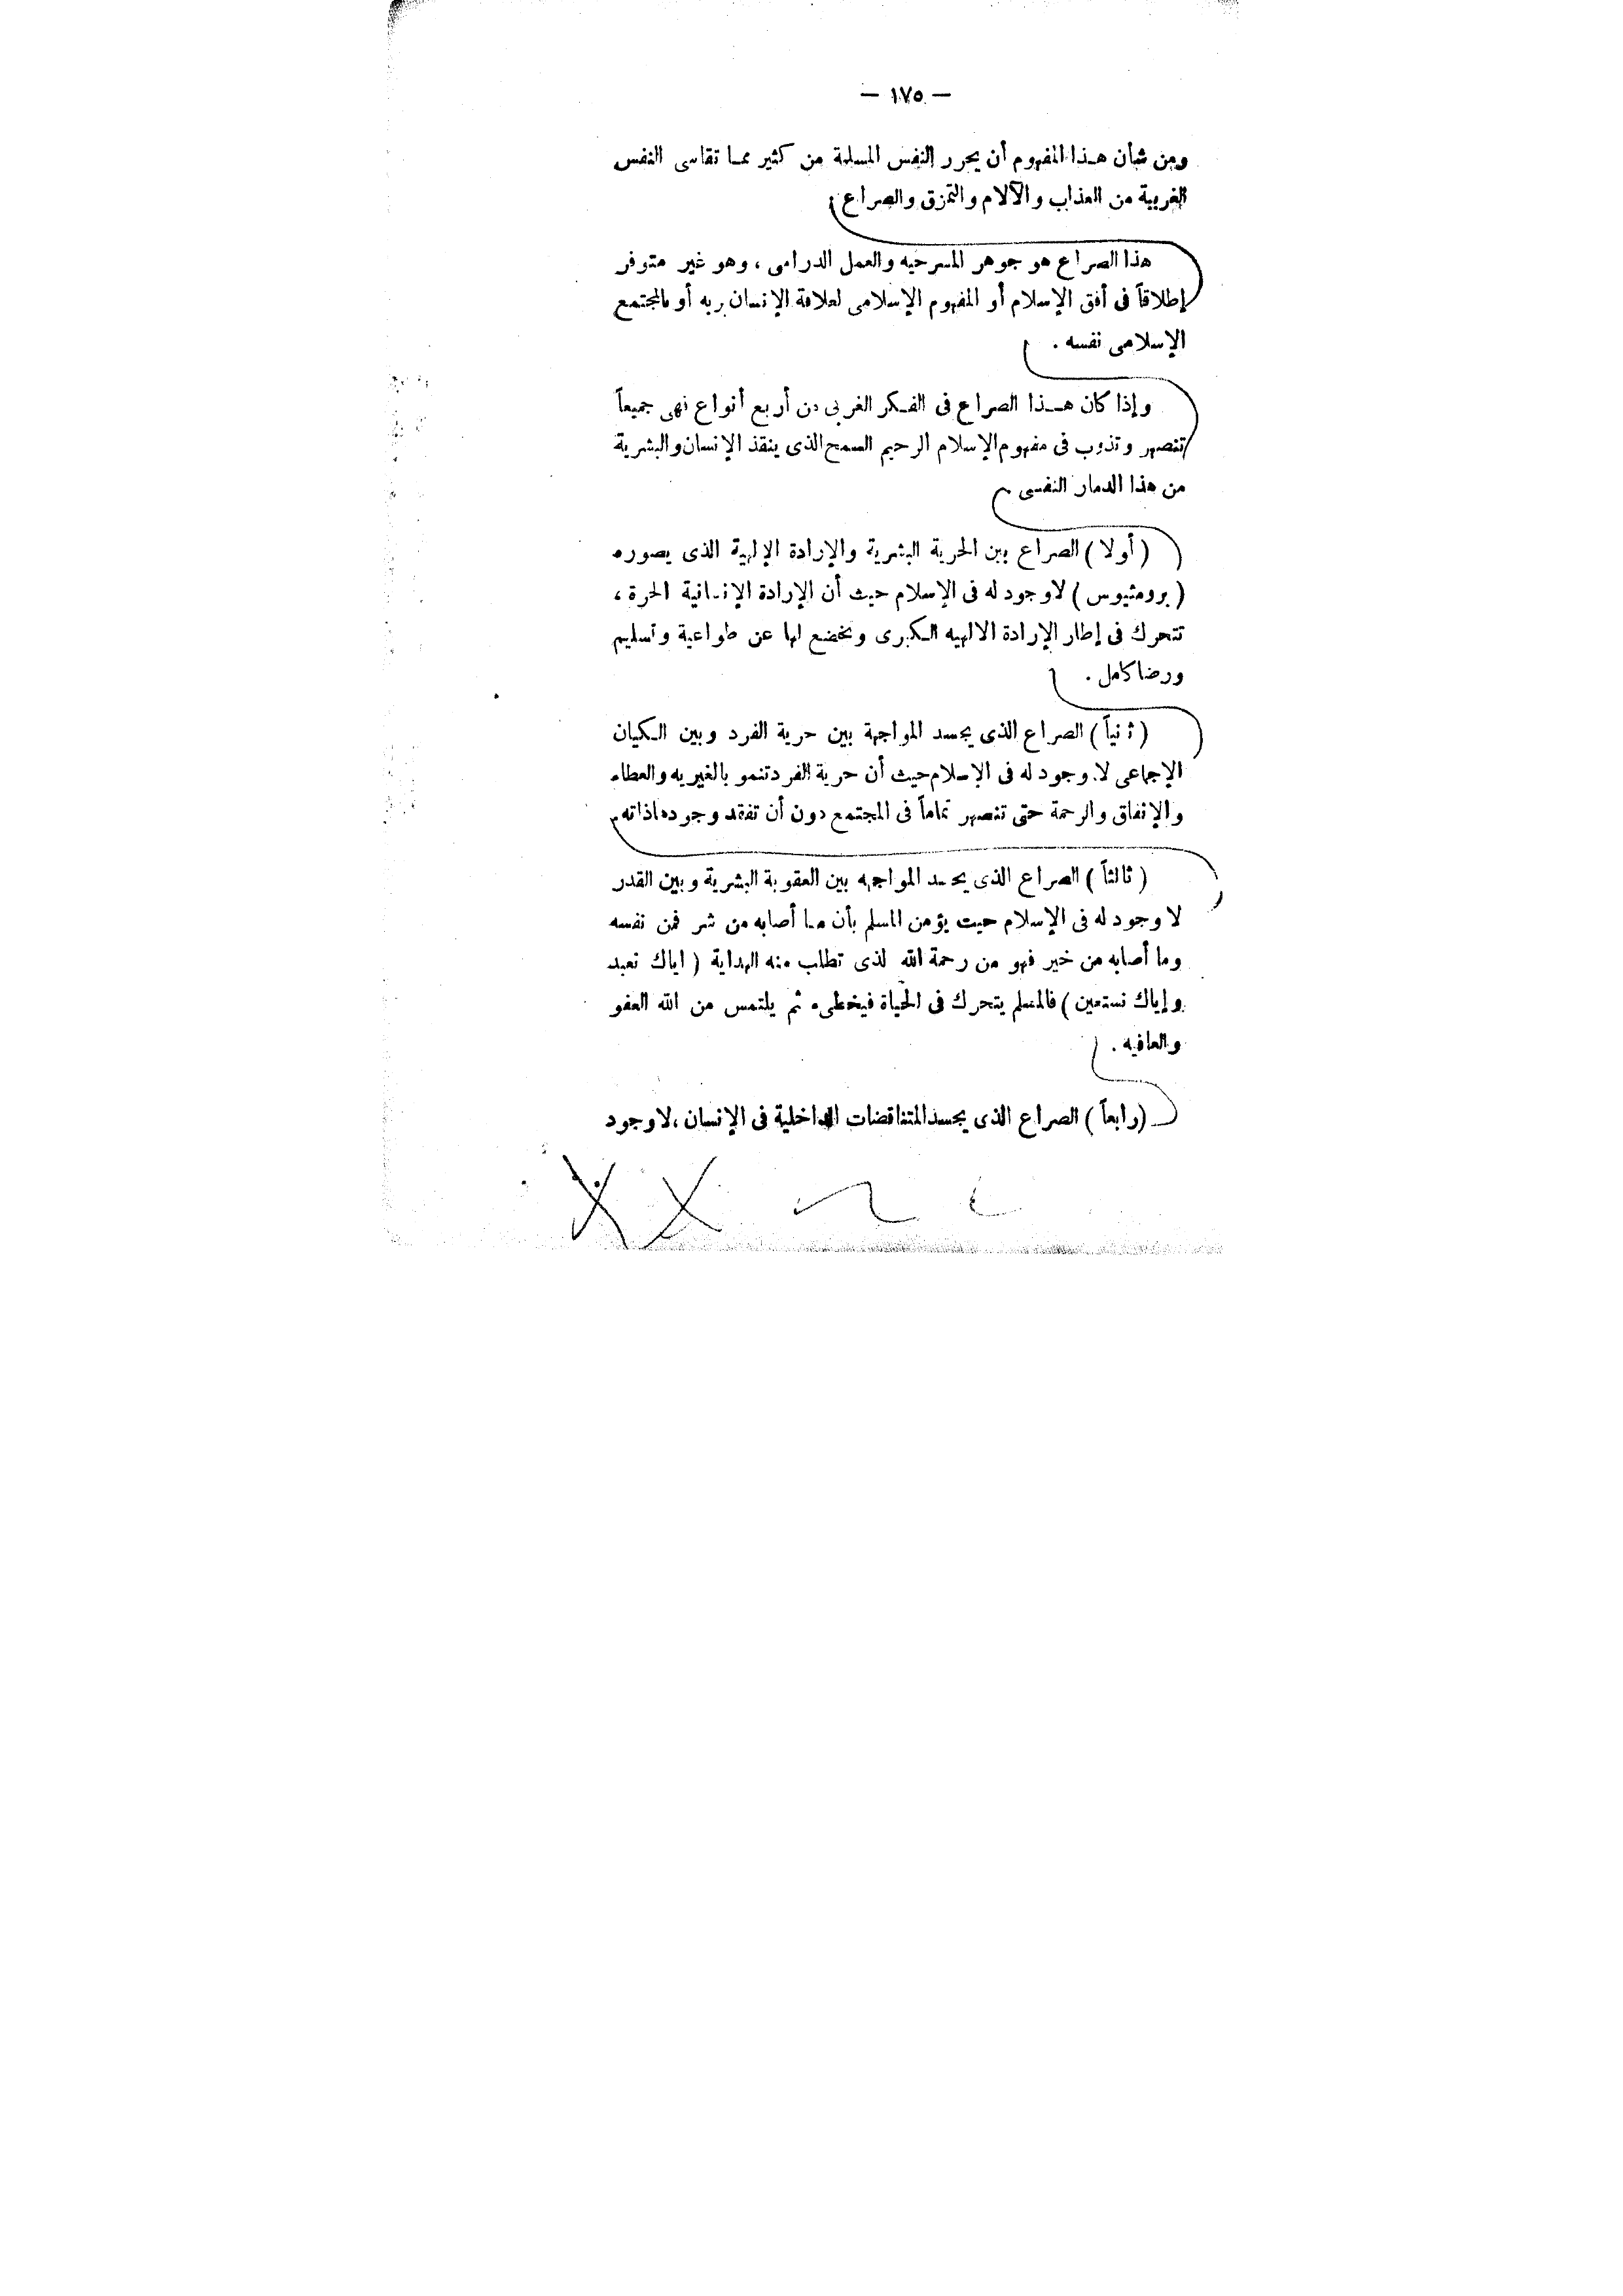 — ١٧٥ —
ومن شأن هذا المفهوم أن يحرر النفس المسلمة من كثير مما تقاسى النفس
الغربية من العذاب والآلام والتمزق والصراع
هذا الصراع هو جوهر المسرحيه والعمل الدرامى ، وهو غير متوفر
إطلاقاً فى أفق الإسلام أو المفهوم الإسلامى لعلاقة الإنسان بربه أو بالمجتمع
الإسلامى نفسه .
وإذا كان هذا الصراع فى الفكر الغربى من أربع أنواع نهى جميعاً
تنصهر وتذوب فى مفهوم الإسلام الرحيم السمح الذى ينقذ الإنسان والبشرية
من هذا الدمار النفسى .
( أولا ) الصراع بين الحرية البشرية والإرادة الإلهية الذى يصوره
( برومثيوس ) لا وجود له فى الإسلام حيث أن الإرادة الإنسانية الحرة ،
تتحرك فى إطار الإرادة الالهيه الكبرى وتخضع لها عن طواعية وتسليم
ورضا كامل .
( ثانياً ) الصراع الذى يجسد المواجهة بين حرية الفرد وبين الكيان
الإجماعى لا وجود له فى الإسلام حيث أن حرية الفرد تنمو بالغيريه والعطاء
والإنفاق والرحمة حتى تنصهر تماماً فى المجتمع دون أن تفقد وجودها ذاته .
( ثالثاً ) الصراع الذى يجسد المواجهه بين العقوبة البشرية وبين القدر
لا وجود له فى الإسلام حيت يؤمن المسلم بأن ما أصابه من شر فمن نفسه
وما أصابه من خير فهو من رحمة الله لذى تطلب منه الهداية ( اياك نعبد
وإياك نستعين ) فالمسلم يتحرك فى الحياة فيخطىء ثم يلتمس من الله العفو
والعافيه .
( رابعاً ) الصراع الذى يجسد المتناقضات الداخلية فى الإنسان ، لا وجود